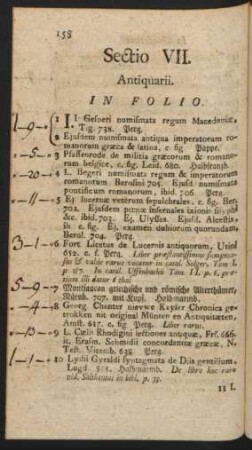 158
Sectio VII.
Antiquarii.
IN FOLIO.
1 Gesneri numismata regum Macedoniæ,
Tig. 738. Perg.
2 Ejusdem numismata antiqua imperatorum romanorum
græca & latina, c. fig. Pappe.
- 5 - 3 Pfaffenrode de militia græcorum & romanorum
belgice, c. fig. Leid. 680. Halbfranb.
- 20 - 4 L. Begeri numismata regum & imperatorum
romanorum Berolini 705. Ejusd. numismata
pontificum romanorum, ibid. 706. Perg.
- 11 - 5 Ej lucernæ veterum sepulchrales, c. fig. Ber.
702. Ejusdem pœnæ infernales ixionis
&c. ibid. 703. Ej. Ulysses. Ejusd. Alcestis
ib. c. fig. Ej. examen dubiorum quorundam
Berol. 704. Perg.
3 - 1 - 6 Fort. Licetus de Lucernis antiquorum,
652. c. f. Perg. Liber præstantissimus
5 - 9 - 7 Montfaucon griechische und römische Alterthümer,
Nürnb. 707. mit Kupf. Halbfranzb.
- 4 - 8 Georg. Chanter nieuwe Keyser Chronica getrokken
nit original Münter en Antiquitæten,
Amst. 617. c. fig. Perg. Liber rarus.
9 L. Cælii Rhodigini lectiones antiquæ, Frf. 666.
it. Erasm. Schmidii concordentiæ græcæ, N.
Test. Vitemb. 638. Perg.
10 Lydii Gyraldi syntagmata de Diis gentilium,
Lugd. Halbfranzb. De libro hoc raro
vid. in bibl. p. 35.
11 I.